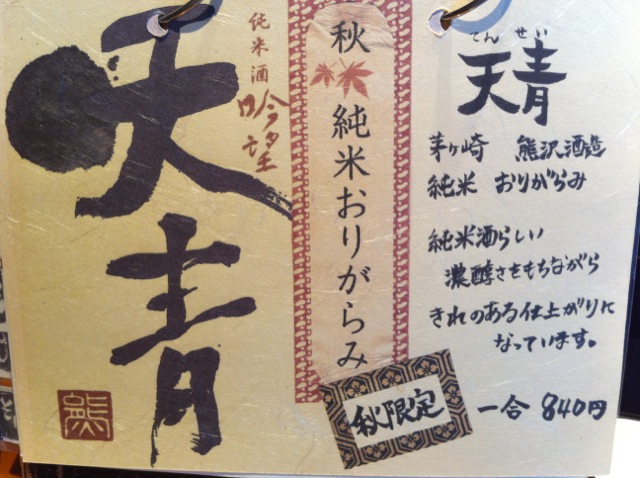 天青
純米酒
吟望
熊
秋
純米おりがらみ
秋限定
てんせい
天青
茅ヶ崎 熊沢酒造
純米 おりがらみ
純米酒らしい
濃醇さをもちながら
きれのある仕上がりに
なっています。
一合 840円